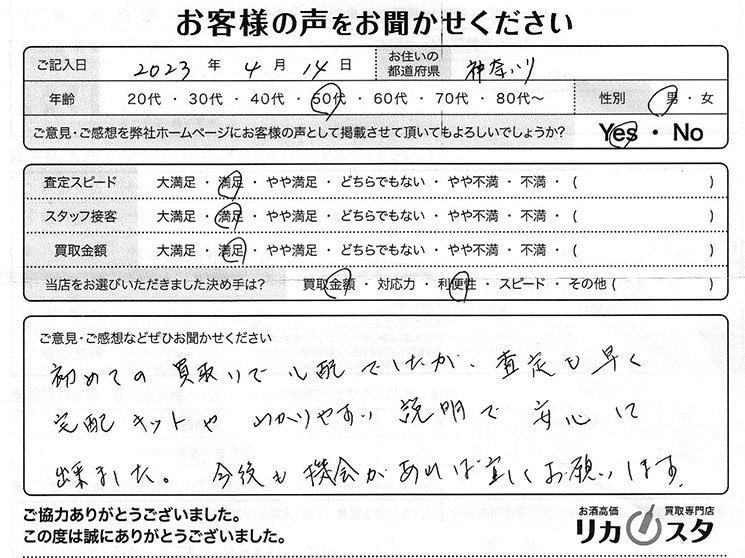 お客様の声をお聞かせください
ご記入日 2023 年 4 月 14 日 お住いの都道府県 神奈川
年齢 20代 ・ 30代 ・ 40代 ・ 50代 ・ 60代 ・ 70代 ・ 80代～ 性別 男 ・ 女
ご意見・ご感想を弊社ホームページにお客様の声として掲載させて頂いてもよろしいでしょうか? Yes ・ No
査定スピード 大満足 ・ 満足 ・ やや満足 ・ どちらでもない ・ やや不満 ・ 不満 ・ ( )
スタッフ接客 大満足 ・ 満足 ・ やや満足 ・ どちらでもない ・ やや不満 ・ 不満 ・ ( )
買取金額 大満足 ・ 満足 ・ やや満足 ・ どちらでもない ・ やや不満 ・ 不満 ・ ( )
当店をお選びいただきました決め手は? 買取金額 ・ 対応力 ・ 利便性 ・ スピード ・ その他 ( )
ご意見・ご感想などぜひお聞かせください
初めての買取りで心配でしたが、査定も早く
宅配キットや わかりやすい説明で安心に
出来ました。 今後も機会があれば宜しくお願いします。
ご協力ありがとうございました。
この度は誠にありがとうございました。
お酒高価 買取専門店
リカスタ